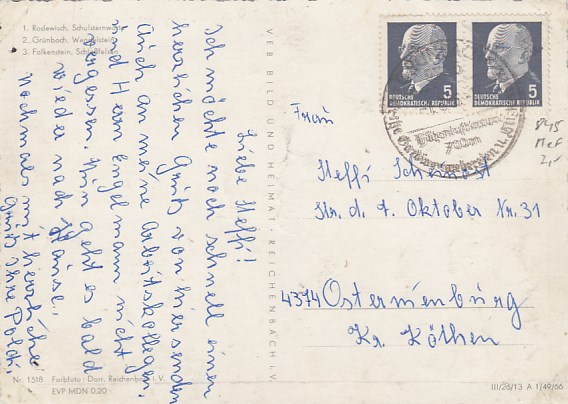 1. Rodewisch, Schulsternwarte
2. Grünbach, Wendelstein
3. Falkenstein, Schloßfelsen
Liebe Steffi!
Ich möchte noch schnell einen
herzlichen Gruß von hier senden
Auch an meine Arbeitskollegen.
und Herrn Engelmann nicht
vergessen. Nun geht es bald
wieder nach Hause.
Nochmals mit herzlichen
Gruß Ihre
VEB BILD UND HEIMAT · REICHENBACH I. V.
DEUTSCHE
DEMOKRATISCHE REPUBLIK
5
DEUTSCHE
DEMOKRATISCHE REPUBLIK
5
Höhenluftkurort
Frau
Steffi
Str. d. 7. Oktober Nr. 31
4374 Osternienburg
Kr. Köthen
2,-
Nr. 1518 Farbfoto: Darr, Reichenbach i. V.
EVP MDN 0,20
III/26/13 A 1/49/66